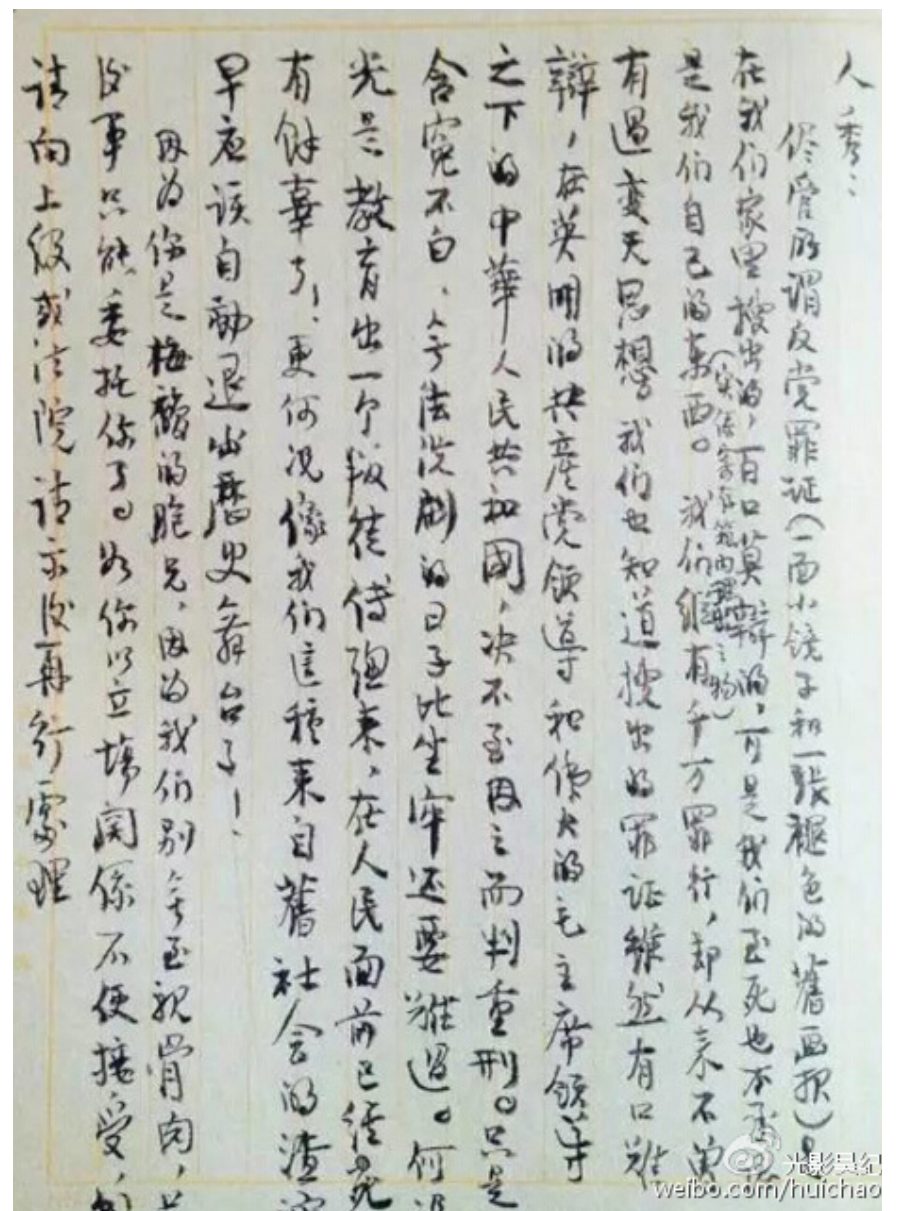 人秀：
侭管所谓反党罪证（一面小镜子和一張褪色的舊画报）是
在我们家里搜出的，百口莫辯的，可是我们至死也不承认
（实係寄存箱内理出之物）
是我们自己的东西。我们縱有千万罪行，却从来不曾
有過变天思想。我们也知道搜出的罪证雖然有口难
辯，在英明的共產党領導和偉大的毛主席領導
之下的中華人民共和國，决不至因之而判重刑。只是
含冤不白、无法洗刷的日子比坐牢还要难過。何况
光是教育出一个叛徒傅聪来，在人民面前已经死
有餘辜了！更何况像我们這種来自舊社会的渣滓
早应该自動退出歷史舞台了！
因为你是梅馥的胞兄，因为我们别无至親骨肉，善
後事只能委托你了。如你以立場関係不便接受，則
请向上级或法院请示後再行處理
weibo.com/huichao